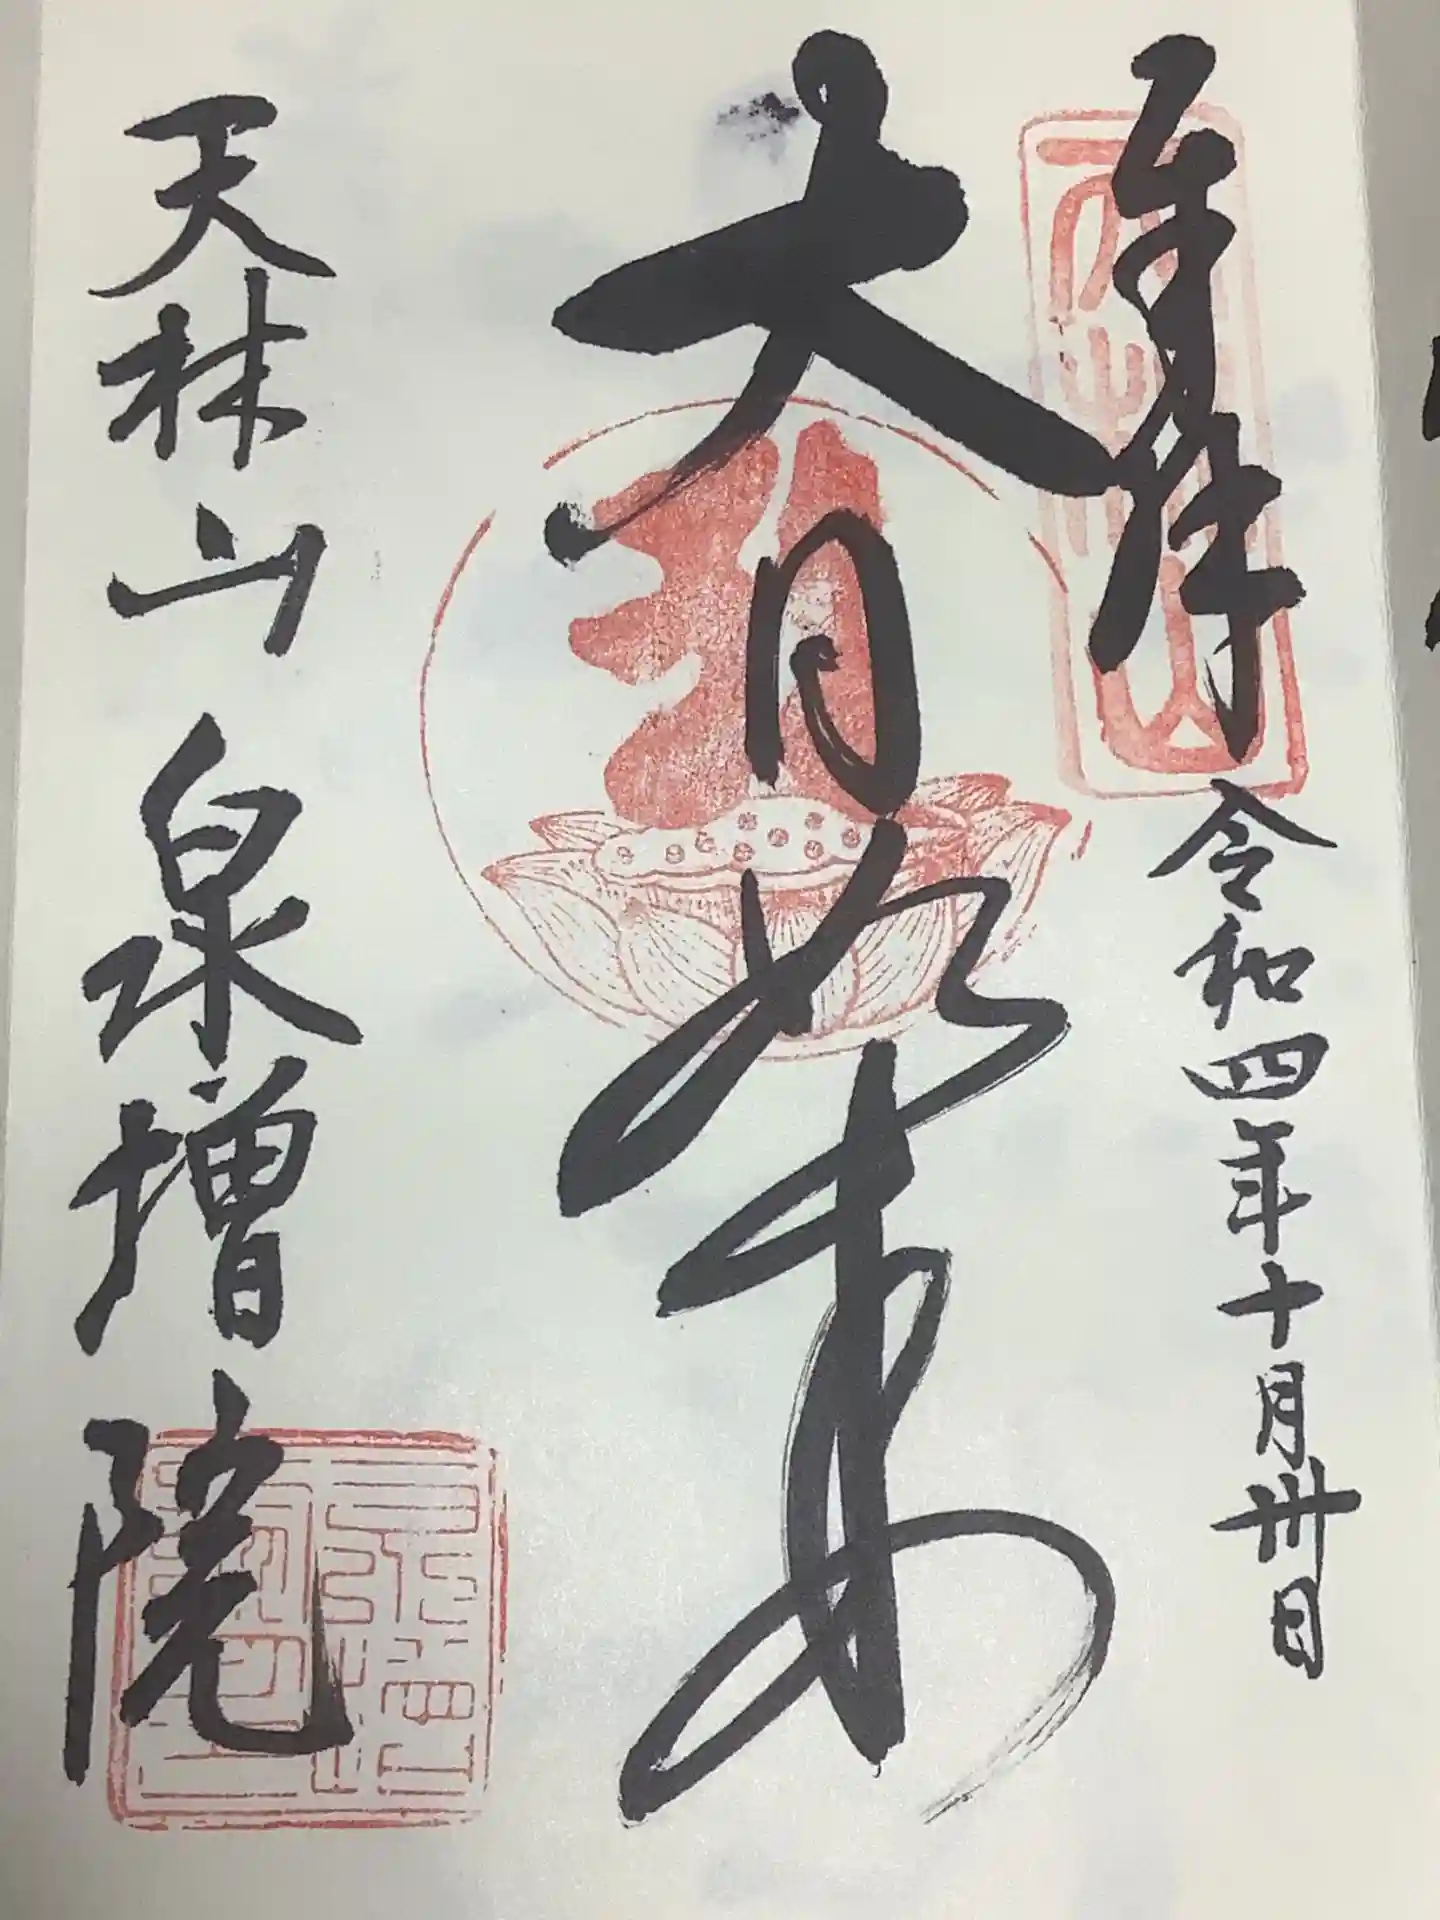 奉拝 令和四年十月卅日
大日如来
天林山 泉増院